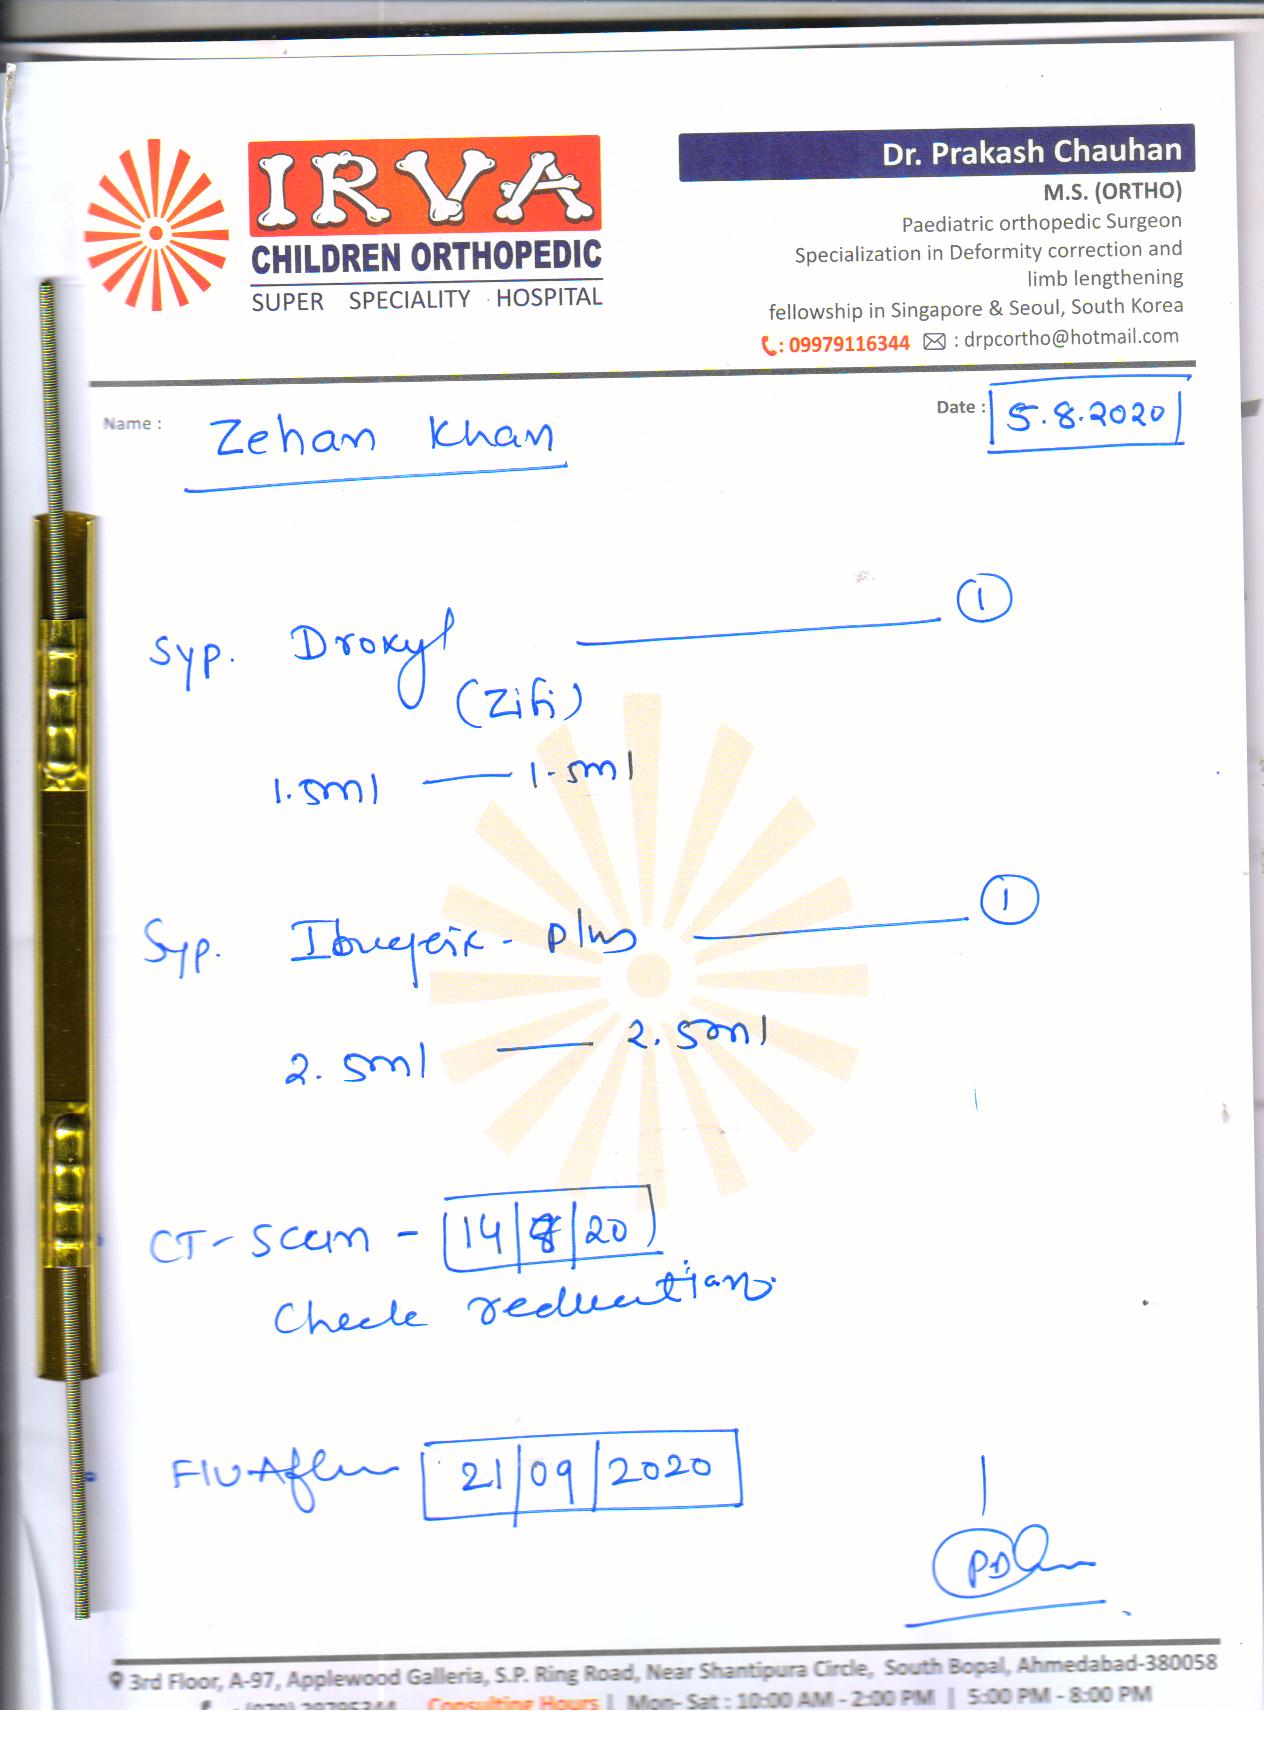 IRVA
CHILDREN ORTHOPEDIC
SUPER SPECIALITY HOSPITAL
Dr. Prakash Chauhan
M.S. (ORTHO)
Paediatric orthopedic Surgeon
Specialization in Deformity correction and
limb lengthening
fellowship in Singapore & Seoul, South Korea
: 09979116344 : drpcortho@hotmail.com
Name : Zehan Khan
Date : 5.8.2020
Syp. Droxyl 1
(Zifi)
1.5ml — 1.5ml
Syp. - Plus 1
2.5ml — 2.5ml
CT-Scan - 14/8/20
Check reduction
21/09/2020
3rd Floor, A-97, Applewood Galleria, S.P. Ring Road, Near Shantipura Circle, South Bopal, Ahmedabad-380058
Consulting Hours | Mon- Sat : 10:00 AM - 2:00 PM | 5:00 PM - 8:00 PM